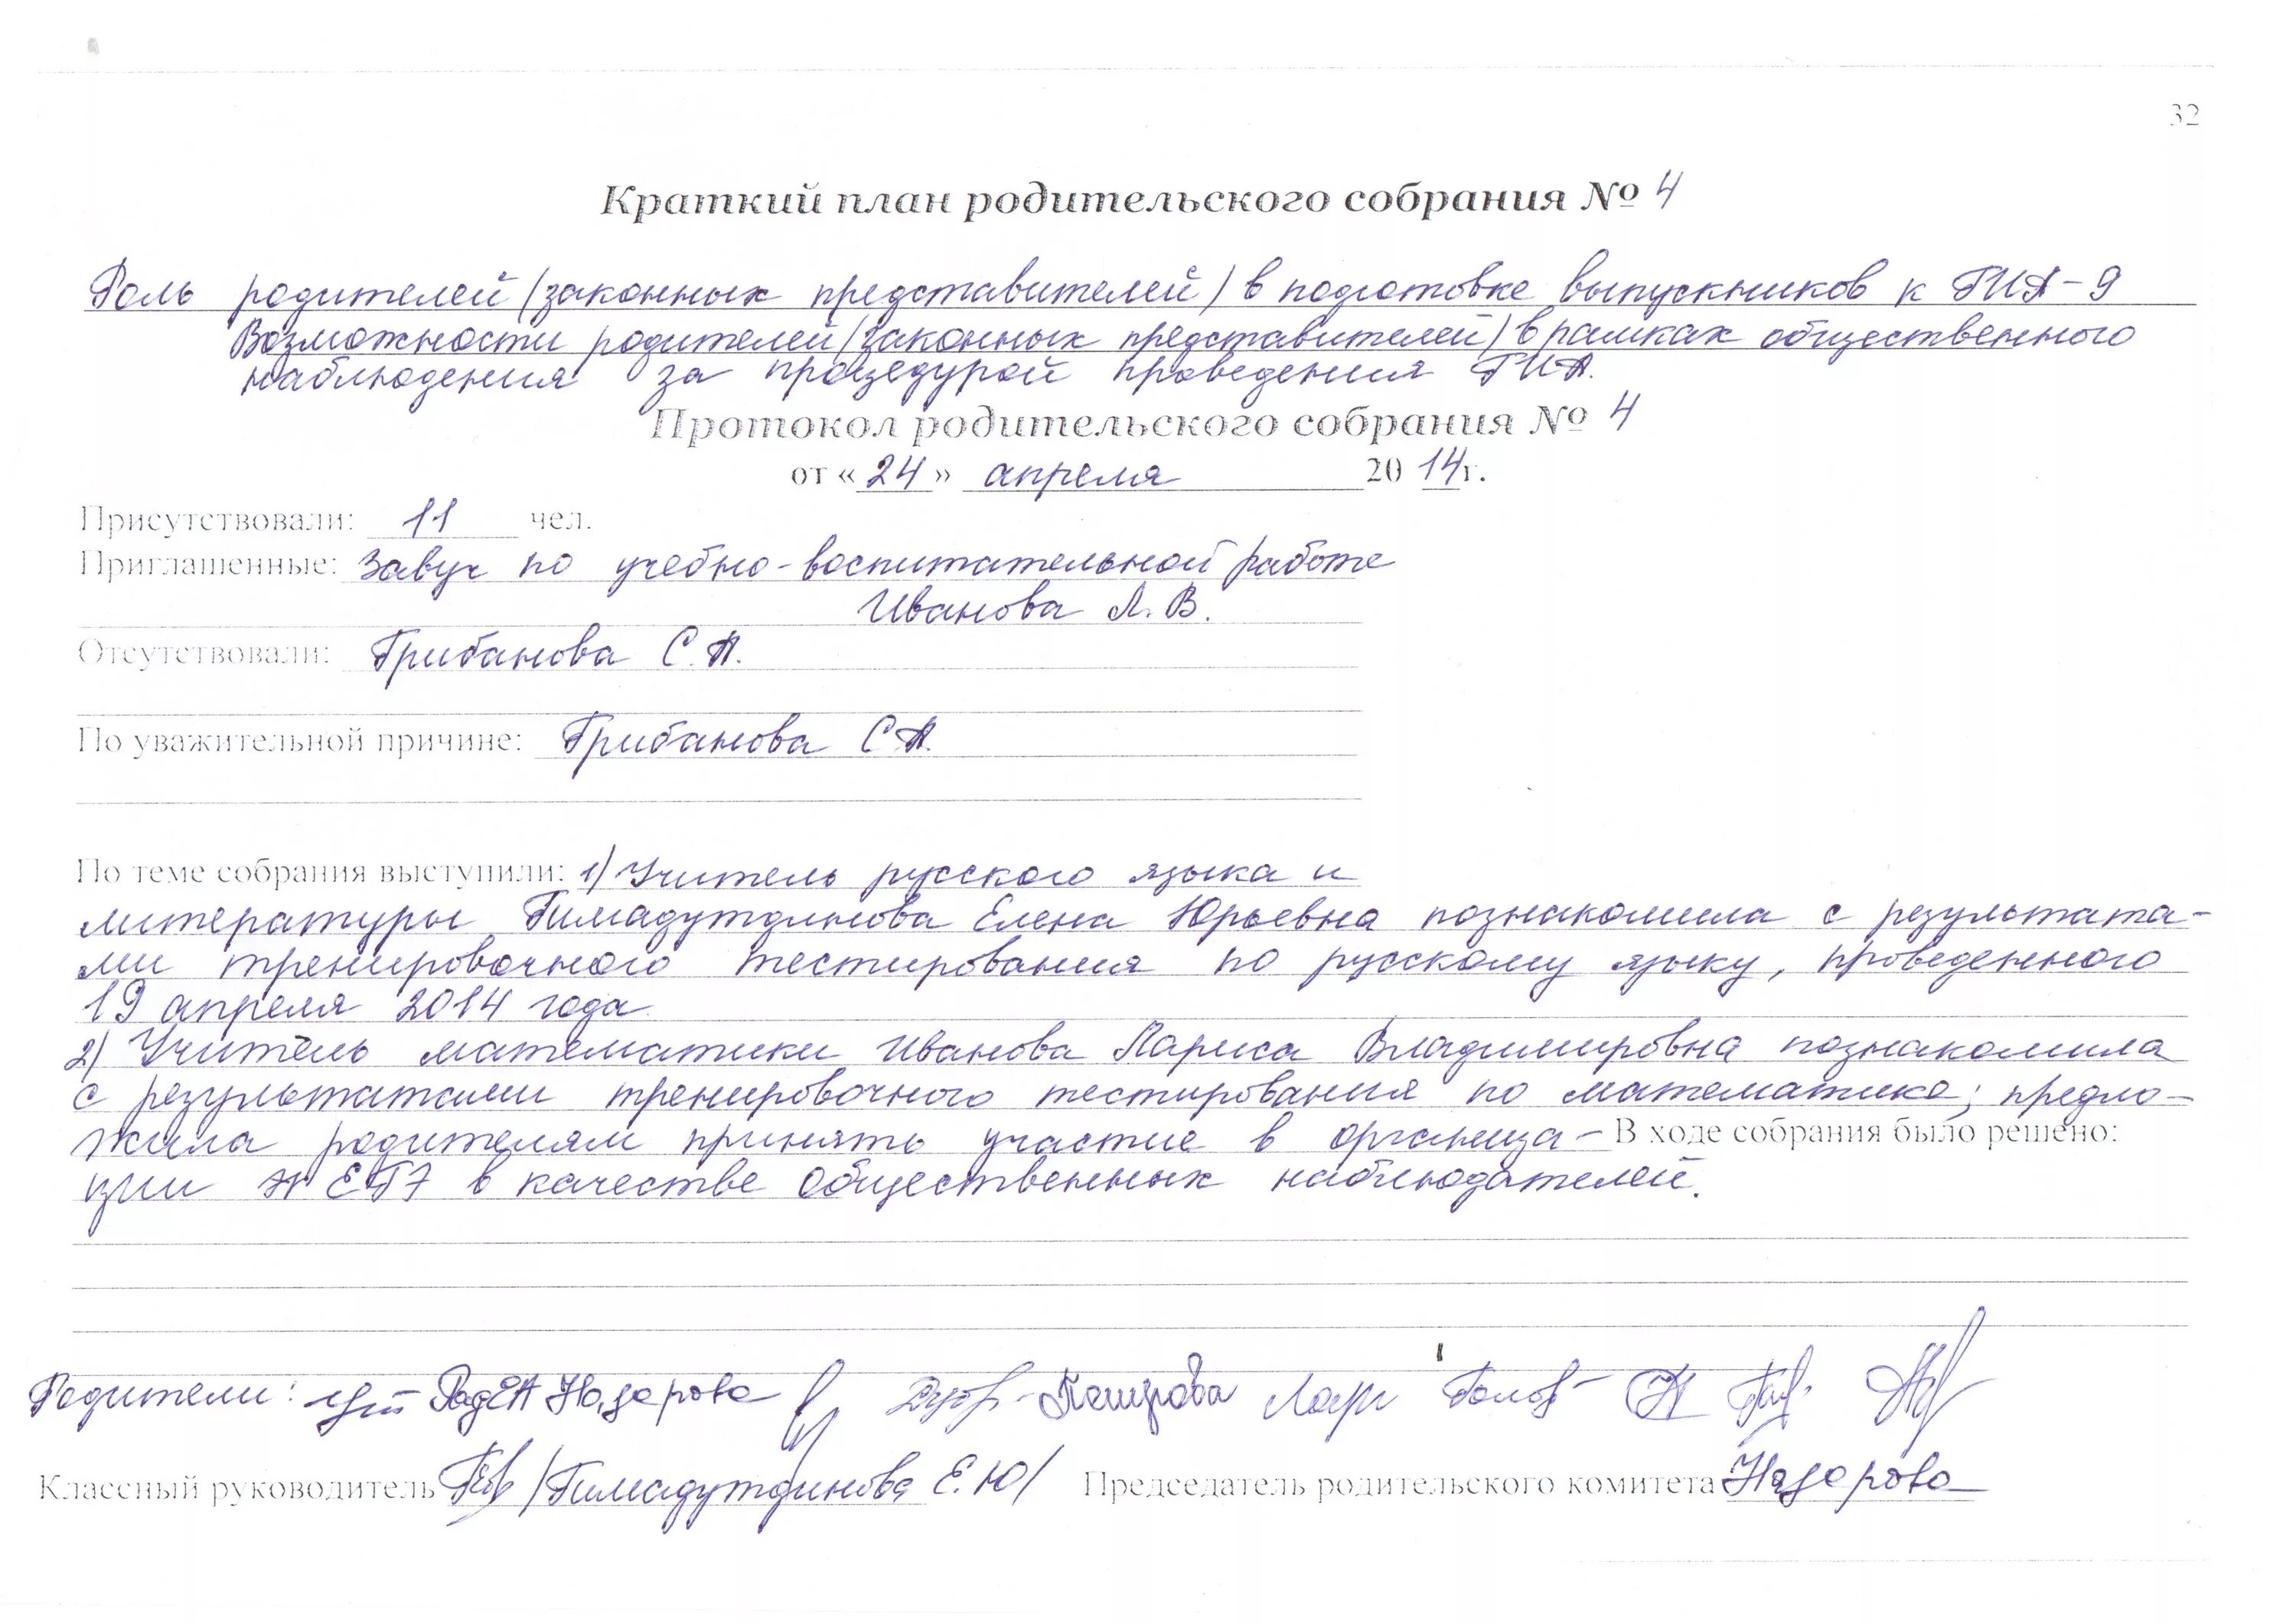 32
Краткий план родительского собрания № 4
Роль родителей (законных представителей) в подготовке выпускников к ГИА-9
Возможности родителей (законных представителей) в рамках общественного
наблюдения за процедурой проведения ГИА.
Протокол родительского собрания № 4
от «24» апреля 2014г.
Присутствовали: 11 чел.
Приглашенные: Завуч по учебно-воспитательной работе
Иванова Л. В.
Отсутствовали: Грибанова С. А.
По уважительной причине: Грибанова С А.
По теме собрания выступили: 1) Учитель русского языка и
литературы Гимадутдинова Елена Юрьевна познакомила с результата-
ми тренировочного тестирования по русскому языку, проведенного
19 апреля 2014 года
2) Учитель математики Иванова Лариса Владимировна познакомила
с результатами тренировочного тестирования по математике; предло-
жила родителям принять участие в организа- В ходе собрания было решено:
ции ЕГЭ в качестве общественных наблюдателей.
Родители: Назарова
Классный руководитель /Гимадутдинова Е.Ю/ Председатель родительского комитета Назарова